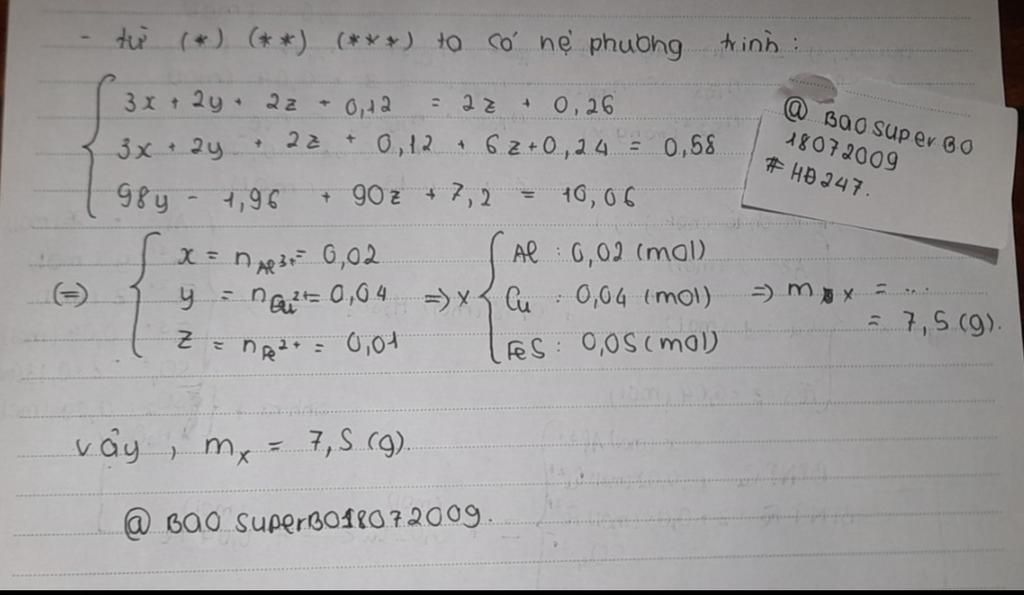 - từ (*) (**) (***) ta có hệ phương trình:
3x + 2y + 2z + 0,12 = 2z + 0,26
3x + 2y + 2z + 0,12 + 6z + 0,24 = 0,58
98y - 1,96 + 90z + 7,2 = 10,06
@ BAO SUPER BO
18072009
# HB247.
(=) x = nAl3+ = 0,02
y = nCu2+ = 0,04
z = nFe2+ = 0,01
=> X Al : 0,02 (mol)
Cu : 0,04 (mol)
FeS : 0,05 (mol)
=> m x = ...
= 7,5 (g).
vậy, mx = 7,5 (g).
@ BAO SUPERBO18072009.